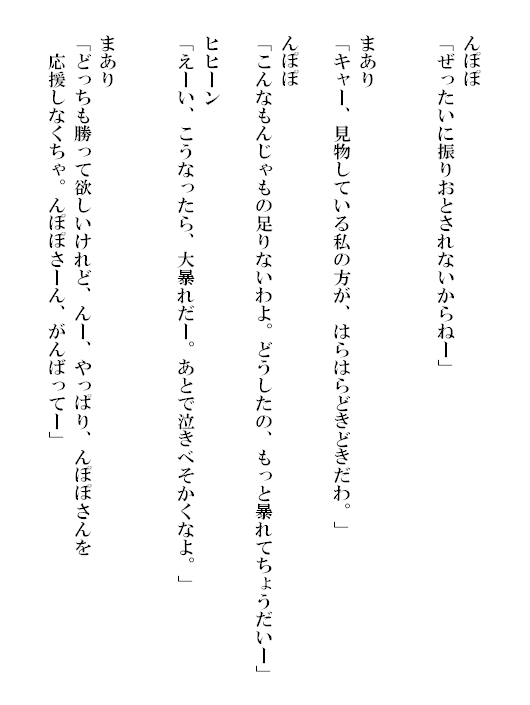 んぽぽ
「ぜったいに振りおとされないからねー」
まあり
「キャー、見物している私の方が、はらはらどきどきだわ。」
んぽぽ
「こんなもんじゃもの足りないわよ。どうしたの、もっと暴れてちょうだいー」
ヒヒーン
「えーい、こうなったら、大暴れだー。あとで泣きべそかくなよ。」
まあり
「どっちも勝って欲しいけれど、んー、やっぱり、んぽぽさんを
応援しなくちゃ。んぽぽさーん、がんばってー」